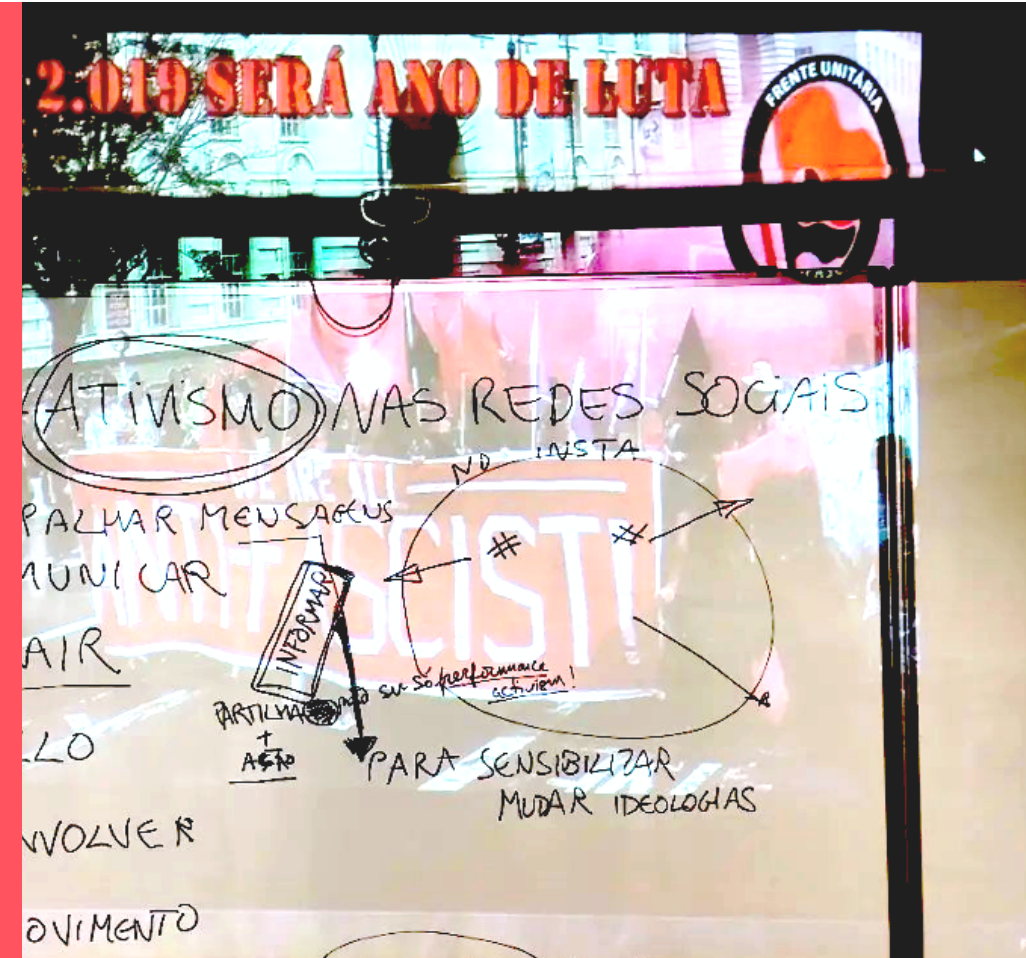 2.019 SERÁ ANO DE LUTA
FRENTE UNITÁRIA
ATIVISMO NAS REDES SOCIAIS
NO INSTA
PALHAR MENSAGENS
# #
MUNICAR
ANTIFASCIST!
INFORMAR
AIR
não ser só performance
activism!
PARTILHAR
+
AÇÃO
LLO
PARA SENSIBILIZAR
MUDAR IDEOLOGIAS
NVOLVER
OVIMENTO